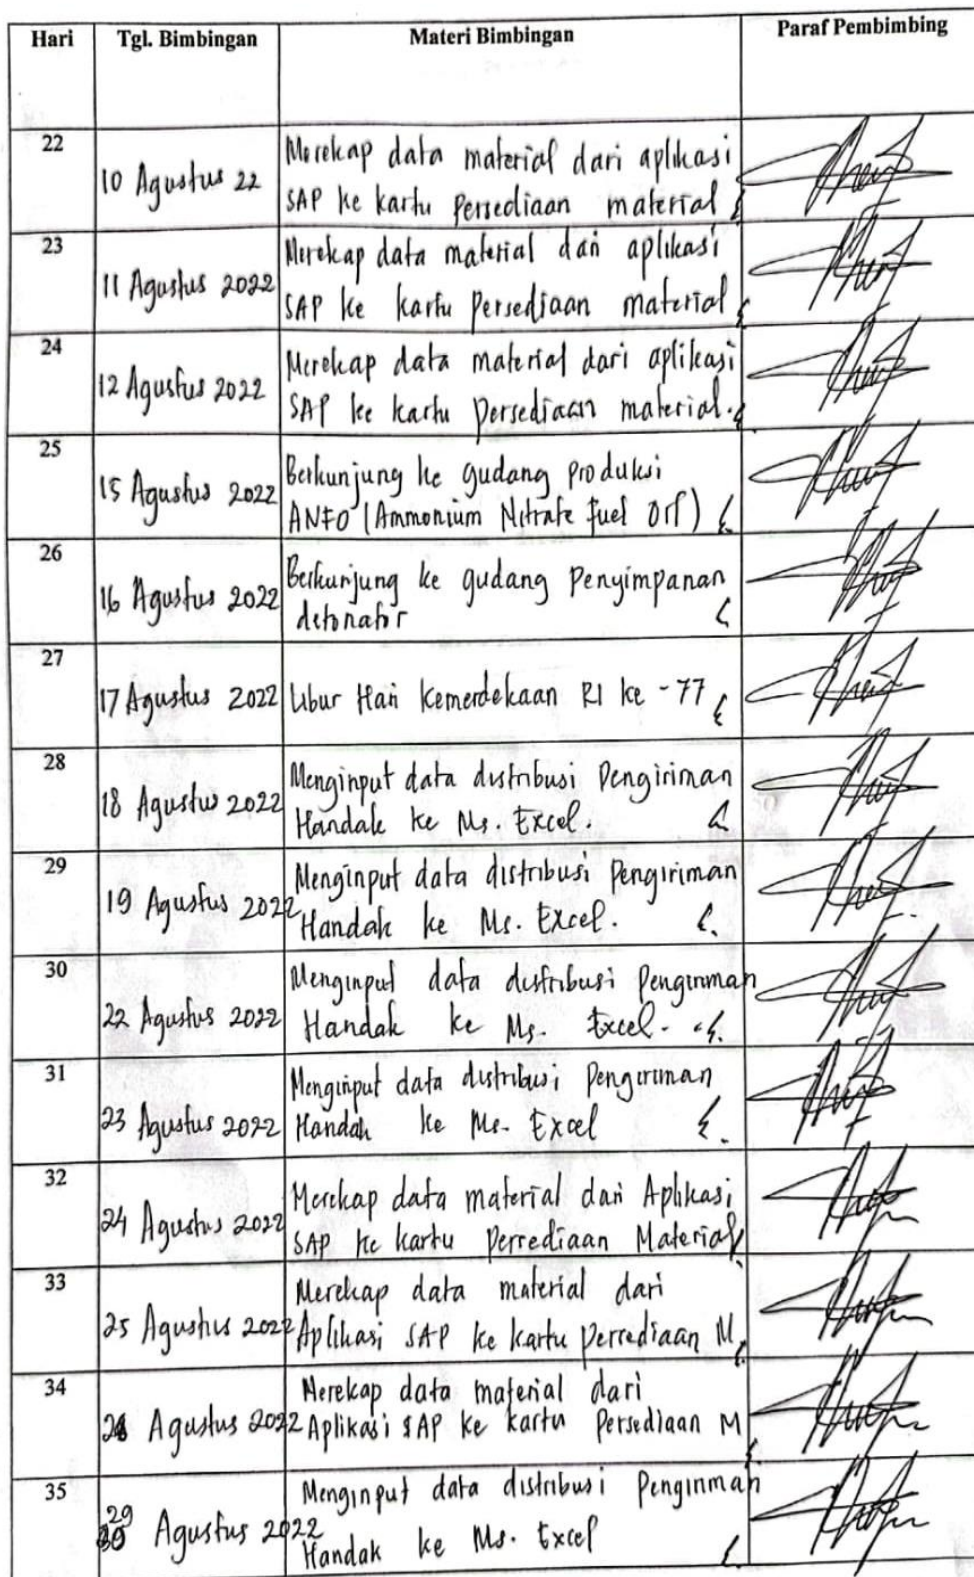 Hari Tgl. Bimbingan Materi Bimbingan Paraf Pembimbing
22
10 Agustus 22
Merekap data material dari aplikasi
SAP ke kartu Persediaan material
23
11 Agustus 2022
Merekap data material dari aplikasi
SAP ke kartu Persediaan material
24
12 Agustus 2022
Merekap data material dari aplikasi
SAP ke kartu Persediaan material.
25
15 Agustus 2022
Berkunjung ke gudang produksi
ANFO (Ammonium Nitrate Fuel Oil)
26
16 Agustus 2022
Berkunjung ke gudang Penyimpanan
detonator
27
17 Agustus 2022
Libur Hari Kemerdekaan RI ke -77
28
18 Agustus 2022
Menginput data distribusi Pengiriman
Handak ke Ms. Excel.
29
19 Agustus 2022
Menginput data distribusi Pengiriman
Handak ke Ms. Excel.
30
22 Agustus 2022
Menginput data distribusi Pengiriman
Handak ke Ms. Excel.
31
23 Agustus 2022
Menginput data distribusi Pengiriman
Handak ke Ms. Excel
32
24 Agustus 2022
Merekap data material dari Aplikasi
SAP ke kartu Persediaan Material
33
25 Agustus 2022
Merekap data material dari
Aplikasi SAP ke kartu persediaan M
34
Agustus 2022
Merekap data material dari
Aplikasi SAP ke kartu Persediaan M
35
29
Agustus 2022
Menginput data distribusi Pengiriman
Handak ke Ms. Excel